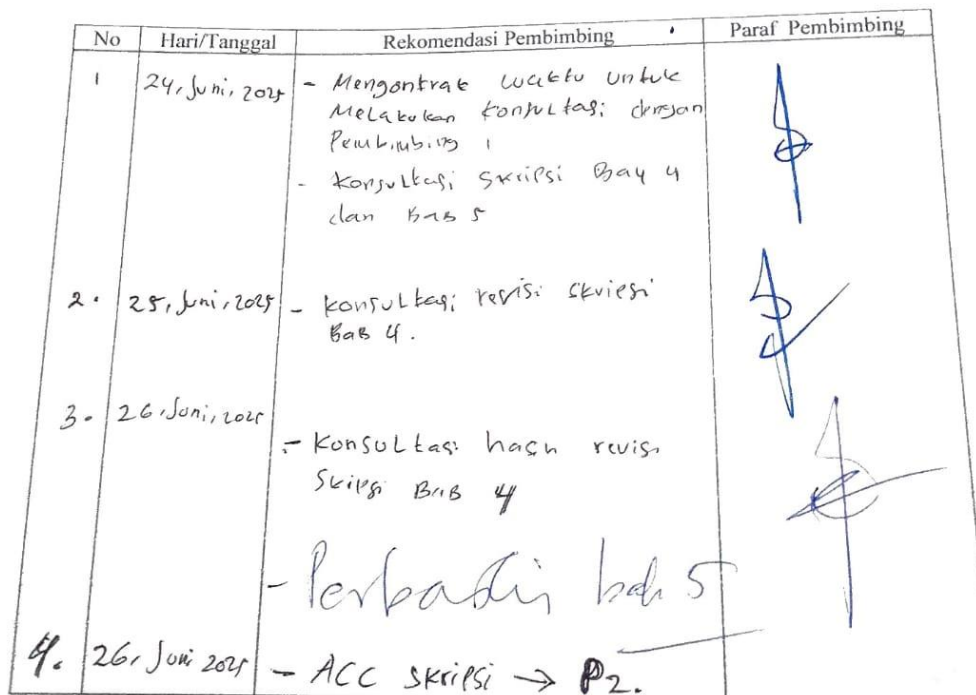 No Hari/Tanggal Rekomendasi Pembimbing Paraf Pembimbing
1 24, Juni, 2025 - Mengontrak waktu untuk
Melakukan konsultasi dengan
Pembimbing 1
- Konsultasi Skripsi Bay 4
dan Bab 5
2. 25, Juni, 2025 - konsultasi revisi skripsi
Bab 4.
3. 26, Juni, 2025
- Konsultasi hasil revisi
Skipsi BAB 4
- Perbaiki bab 5
4. 26, Juni 2025 - ACC skripsi → P2.